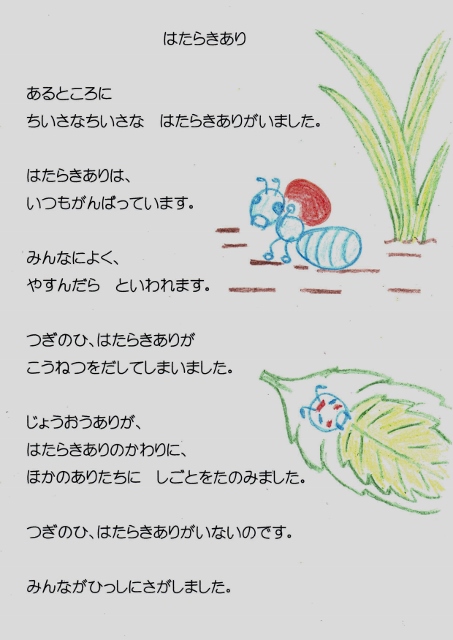 はたらきあり
あるところに
ちいさなちいさな　はたらきありがいました。
はたらきありは、
いつもがんばっています。
みんなによく、
やすんだら　といわれます。
つぎのひ、はたらきありが
こうねつをだしてしまいました。
じょうおうありが、
はたらきありのかわりに、
ほかのありたちに　しごとをたのみました。
つぎのひ、はたらきありがいないのです。
みんながひっしにさがしました。